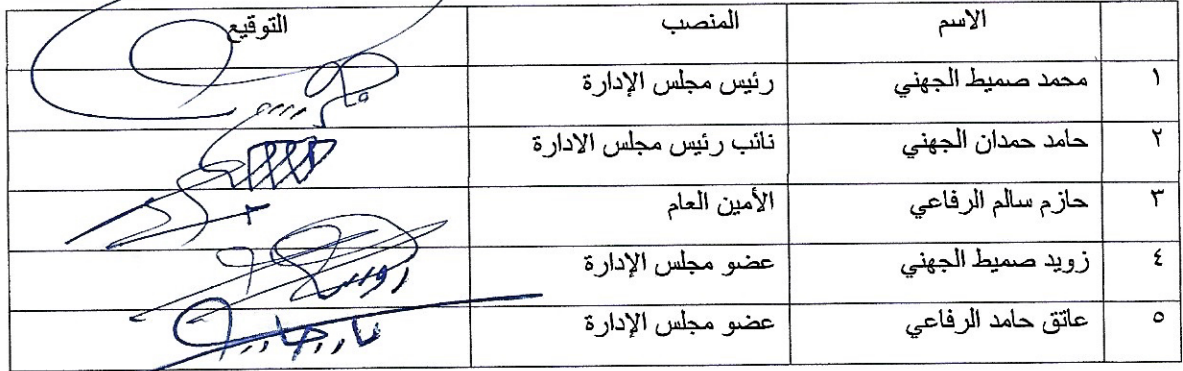 الاسم المنصب التوقيع
١ محمد صميط الجهني رئيس مجلس الإدارة
٢ حامد حمدان الجهني نائب رئيس مجلس الادارة
٣ حازم سالم الرفاعي الأمين العام
٤ زويد صميط الجهني عضو مجلس الإدارة
٥ عاتق حامد الرفاعي عضو مجلس الإدارة